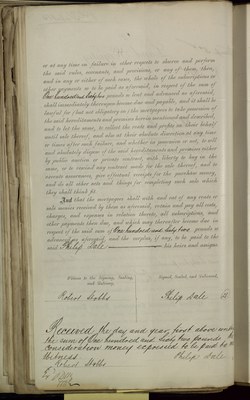 or at any time on failure in other respects to observe and perform
the said rules, covenants, and provisions, or any of them, then,
and in any or either of such cases, the whole of the subscriptions or
other payments so to be paid as aforesaid, in respect of the sum of
One hundred and sixty two pounds so lent and advanced as aforesaid,
shall immediately thereupon become due and payable, and it shall be
lawful for (but not obligatory on) the mortgagees to take possession of
the said hereditaments and premises herein mentioned and described,
and to let the same, to collect the rents and profits on their being
until sale thereof, and also at their absolute discretion at any time
or times after such failure, and whether in possession or not, to sell
and absolutely dispose of the said hereditaments and premises either
by public auction or private contract, with liberty to buy in the
same, or to rescind any contract made for the sale thereof, and to
execute assurances, give effectual receipts for the purchase money,
and do all other acts and things for completing such sale which
they shall think fit.
And that the mortgagees shall with and out of any rents or
sale monies received by them as aforesaid, retain and pay all costs,
charges, and expenses in relation thereto, all subscriptions, and
other payments then due, and which may thereafter become due in
respect of the said sum of One hundred and sixty two pounds so
advanced as aforesaid, and the surplus, if any, to be paid to the
said Philip Dale his heirs and assigns
Witness to the Signing, Sealing,
and Delivery.
Signed, Sealed, and Delivered,
Robert Stobbs
Philip Dale
Received the day and year first above
the sum of One hundred and sixty two pounds
consideration money expressed to be paid by
Witness
Philip Dale
Robert Stobbs